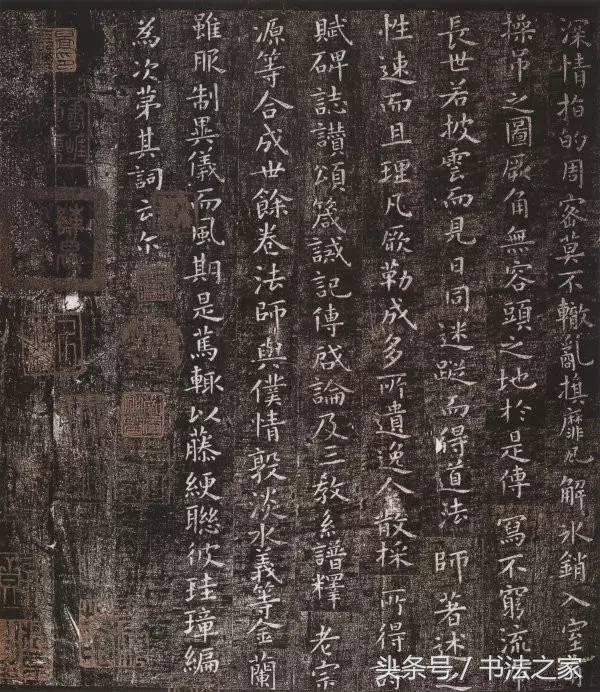 深情指的周密莫不轍亂旗靡瓦解冰銷入室
操吊之圖厥角無容頭之地於是傳寫不窮流
長世若披雲而見日同迷蹤而得道法師著述
性速而且理凡厥勒成多所遺逸今散採所得詩
賦碑誌讚頌箴誡記傳啟論及三教系譜釋老宗
源等合成世餘卷法師與僕情敦淡水義等金蘭
雖服制異儀而風期是篤輒以藤綆聯彼珪璋編
為次第其詞云尔
头条号 / 书法之家